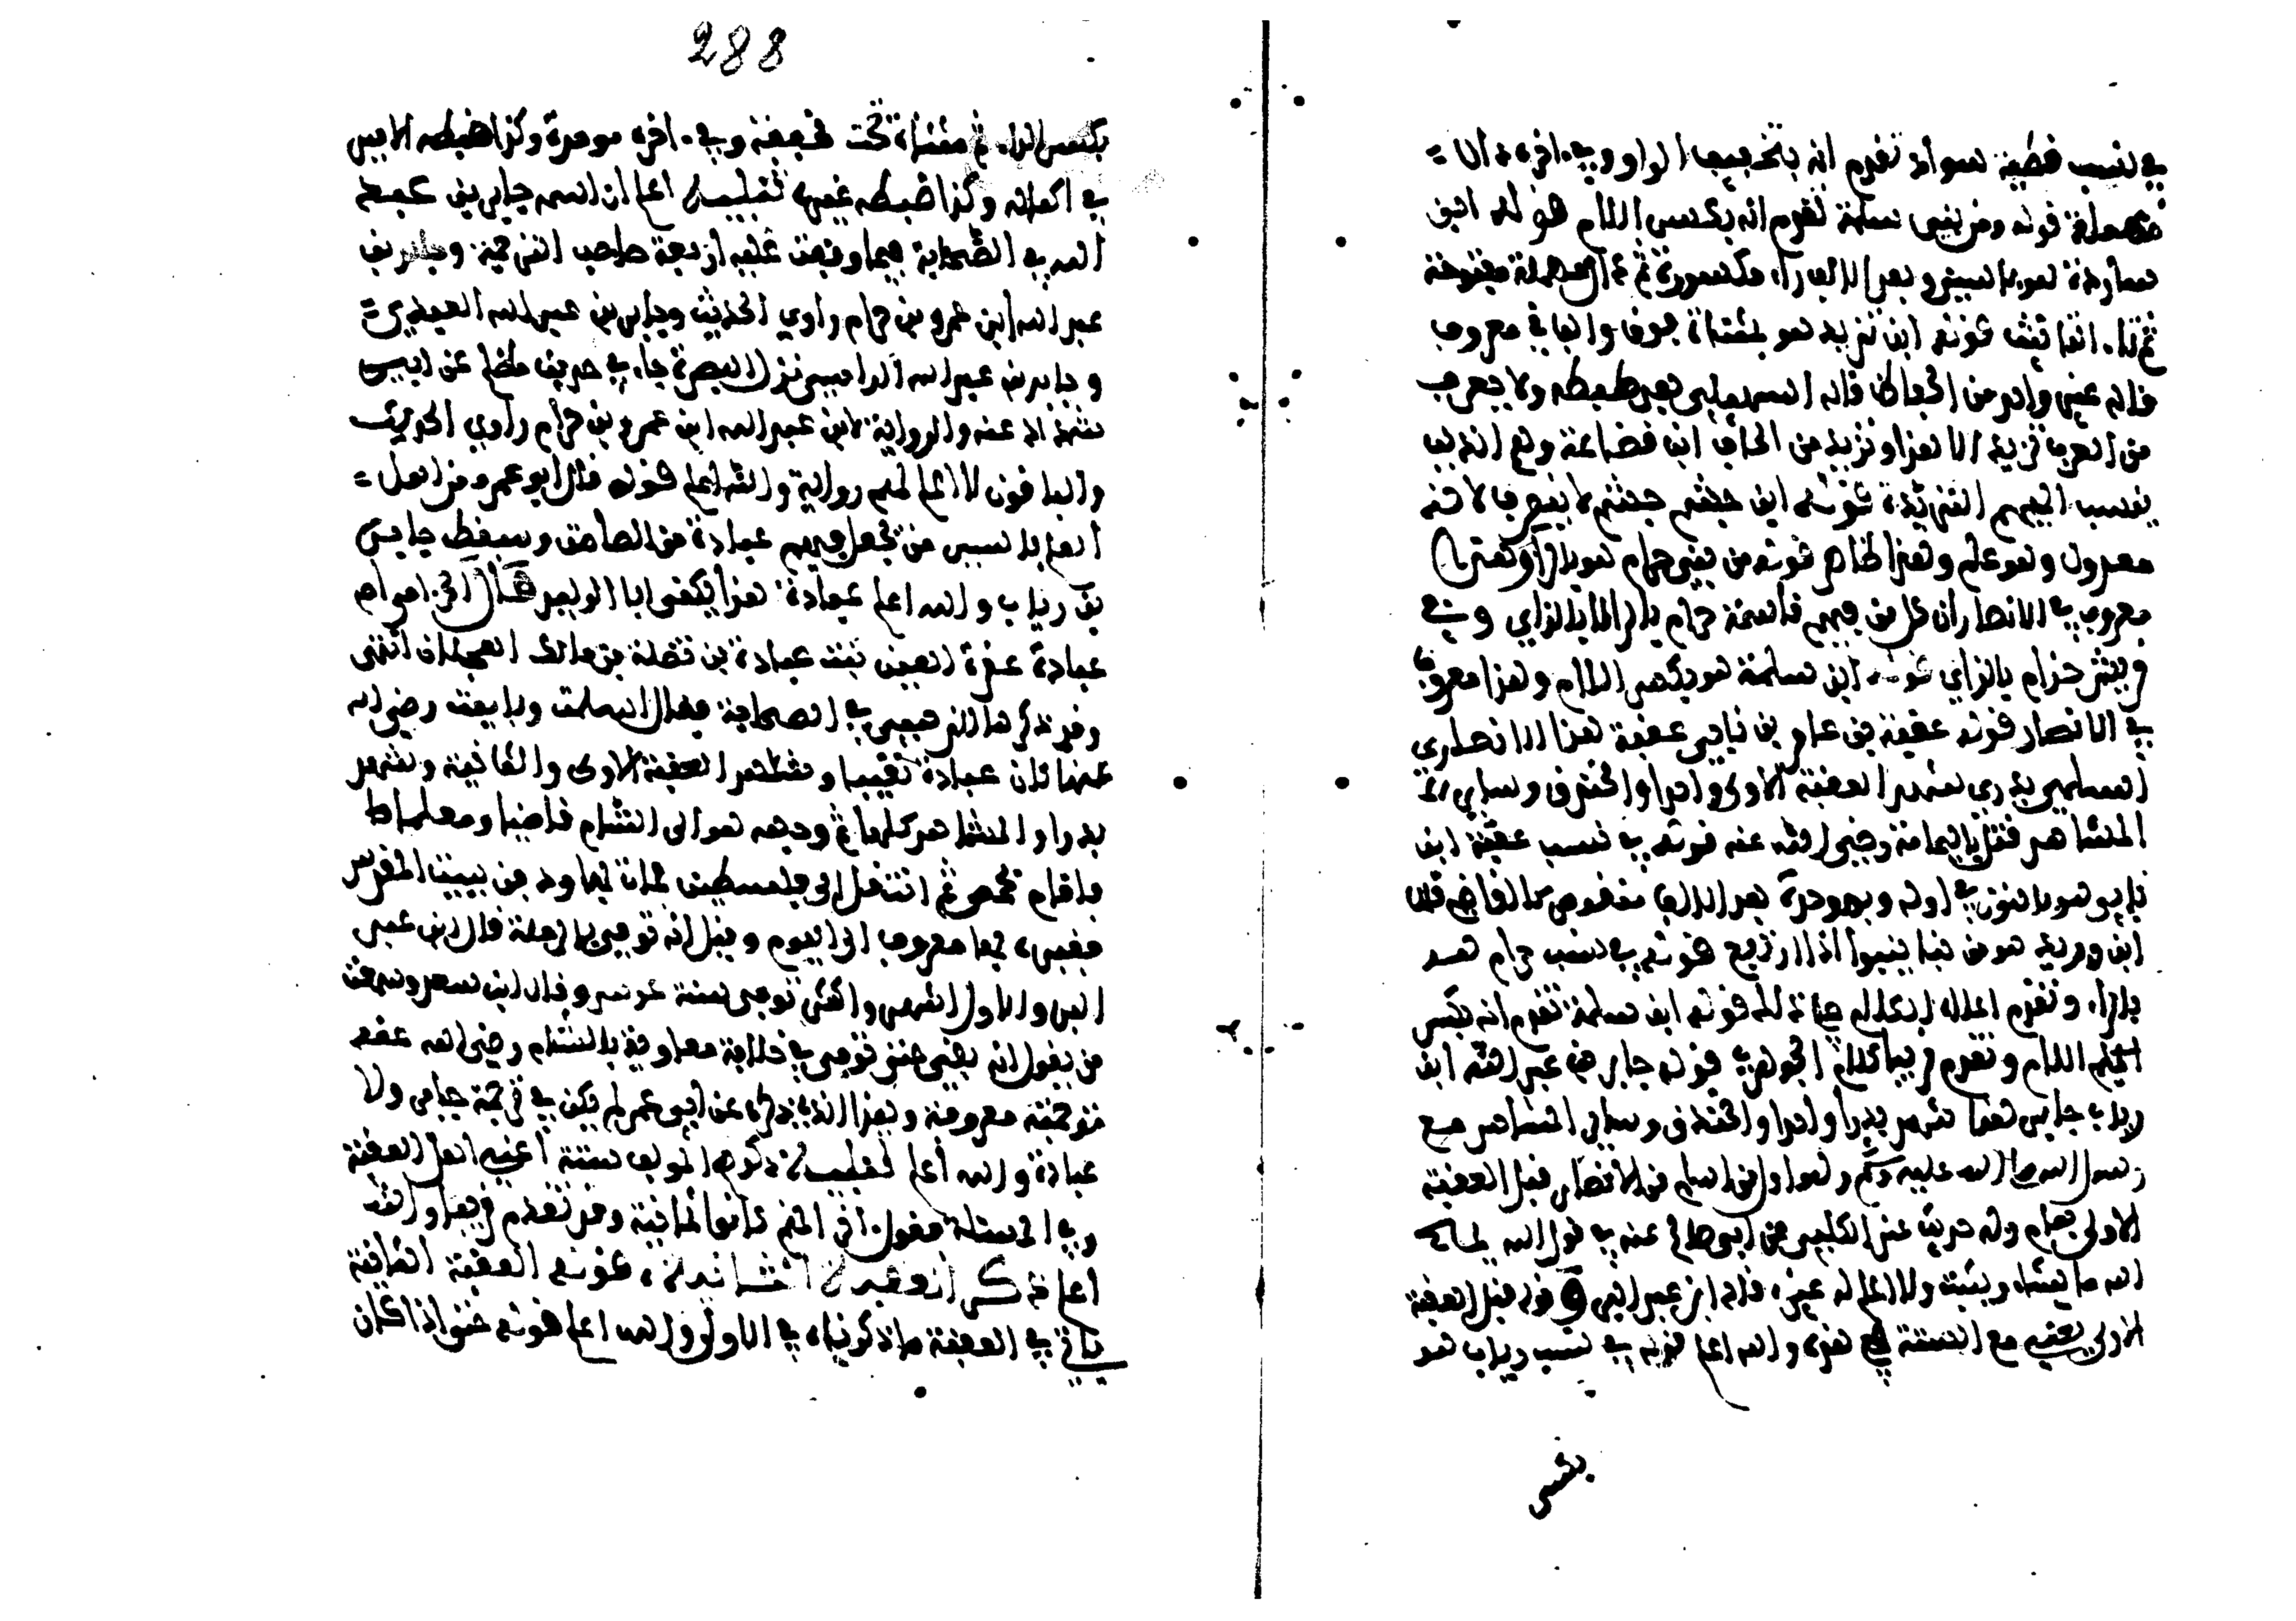 في نسب قطبة سواد تقدم انه بتخفيف الواو وفي اخره دال
مهملة قوله ومن بني سلمة تقدم انه بكسر اللام قوله ابن
ساردة هو بالسين وبعد الالف راء مكسورة ثم دال مهملة مفتوحة
ثم تاء التانيث قوله ابن تزيد هو بمثناة فوق والباقي معروف
قاله غير واحد من الحفاظ قاله السهيلي بعد ضبطه ولا يعرف
من العرب تزيد الا هذا وتزيد من الحاف ابن قضاعة وهم الذين
ينسب اليهم التزيدية قوله ابن جشم جشم لا ينصرف لانه
معدول وهو علم وهذا ظاهر قوله من بني حرام هو بالراء وهذا
معروف في الانصار ان كل من فيهم فاسمه حرام بالراء لا بالزاي وفي
قريش حزام بالزاي قوله ابن سلمة هو بكسر اللام وهذا معروف
في الانصار قوله عقبة بن عامر بن نابي عقبة هذا الانصاري
السلمي بدري شهد العقبة الاولى واحدا والخندق وسائر
المشاهد قتل باليمامة رضي الله عنه قوله في نسب عقبة ابن
نابي هو بالنون في اوله وبموحدة بعد الالف منقوص كالقاضي قال
ابن دريد هو من نبا ينبوا اذا ارتفع قوله في نسب حرام هو
بالراء وتقدم اعلاه قوله ابن سلمة تقدم انه بكسر
اللام وتقدم قريبا كلام الجوهري قوله جابر بن عبد الله ابن
رياب جابر هذا شهد بدرا واحدا والخندق وسائر المشاهد مع
رسول الله صلى الله عليه وسلم وهو اول من اسلم من الانصار قبل العقبة
الاولى بعام وله حديث عند الكلبي عن ابي صالح عنه في قول الله يمحو
الله ما يشاء ويثبت ولا اعلم له غيره قاله ابن عبد البر وقوله قبل العقبة
الاولى يعني مع الستة في هذه والله اعلم قوله في نسب رياب هو
بكسر
288
بكسر الراء ثم مثناة تحت مخففة وفي اخره موحدة وكذا ضبطه الامير
في اكماله وكذا ضبطه غيره تنبيه اعلم ان اسمه جابر بن عبد
الله في الصحابة فيما وقفت عليه اربعة صاحب الترجمة وجابر بن
عبد الله ابن عمرو بن حرام راوي الحديث وجابر بن عبد الله العبدي
وجابر بن عبد الله الراسبي نزل البصرة جاء في حديث مظلم عن ابي
شداد عنه والرواية لابن عبد الله ابن عمرو بن حرام راوي الحديث
والباقون لا اعلم لهم رواية والله اعلم قوله قال ابو عمر ومن اهل
العلم بالسير من يجعل فيهم عبادة بن الصامت ويسقط جابر
بن رياب والله اعلم عبادة هذا يكنى ابا الوليد قال اخره ام
عبادة قرة العين بنت عبادة بن نضلة بن مالك العجلان انتهى
وقد ذكرها الذهبي في الصحابة فقال اسلمت وبايعت رضي الله
عنها كان عبادة نقيبا وشهد العقبة الاولى والثانية وشهد
بدرا والمشاهد كلها ثم وجهه عمر الى الشام قاضيا ومعلما
فاقام بحمص ثم انتقل الى فلسطين فمات بها ودفن ببيت المقدس
فقبره بها معروف الى اليوم وقيل انه توفي بالرملة قال ابن عبد
البر والاول اشهر واكثر توفي سنة وقال ابن سعد وسمعت
من يقول انه بقي حتى توفي في خلافة معاوية بالشام رضي الله عنه
وترجمته معروفة وهذا الذي ذكره عن ابي عمر لم يكن في ترجمة جابر ولا
عبادة والله اعلم تنبيه ذكرهم المولف ستة اعني اهل العقبة
وفي المسئلة قول اخر انهم كانوا ثمانية وقد تقدم قريبا والله
اعلم ذكر العقبة الثانية قوله العقبة الثانية
ياتي في العقبة ما ذكرناه في الاولى والله اعلم قوله حتى اذا كان